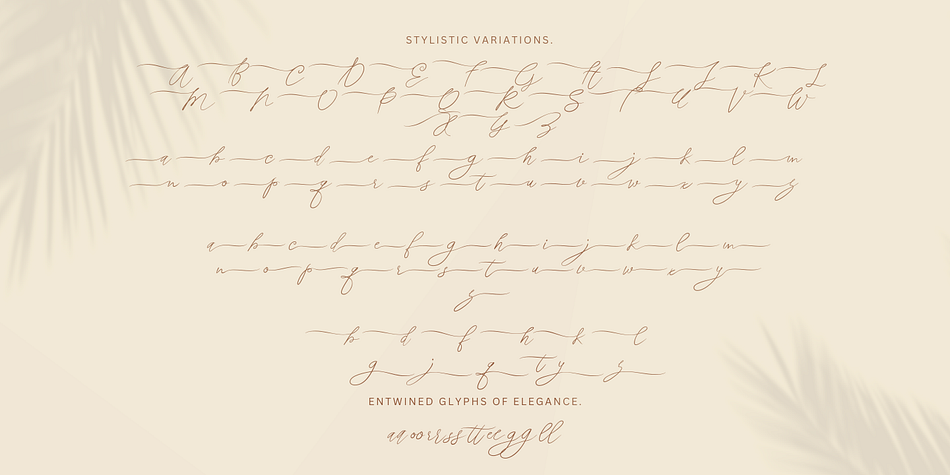 STYLISTIC VARIATIONS.
A B C D E F G H I J K L
M N O P Q R S T U V W
X Y Z
a b c d e f g h i j k l m
n o p q r s t u v w x y z
a b c d e f g h i j k l m
n o p q r s t u v w x y
z
b d f h k l
g j q t y z
ENTWINED GLYPHS OF ELEGANCE.
aa oo rr ss tt ee gg ll